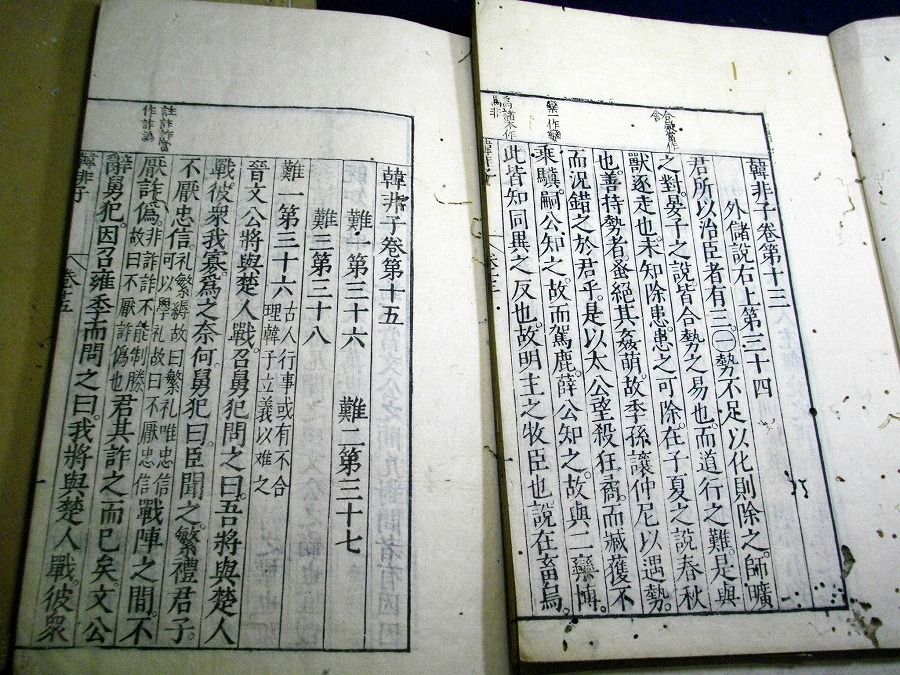 韓非子卷第十三
外儲說右上第三十四
君所以治臣者有三㊀勢不足以化則除之。師曠
之對。晏子之說皆合勢之易也而道行之難。是與
獸逐走也。未知除患。患之可除。在子夏之說春秋
也。善持勢者。蚤絕其姦萌。故季孫讓仲尼以遇勢。
而況錯之於君乎。是以太公望殺狂矞。而臧獲不
乘驥。嗣公知之。故而駕鹿。薛公知之。故與二欒博。
此皆知同異之反也。故明主之牧臣也說在畜烏。
欒一作孿
韓非子卷第十五
難一第三十六 難二第三十七
難三第三十八
難一第三十六 古人行事或有不合
理韓子立義以难之
晉文公將與楚人戰。召舅犯問之曰。吾將與楚人
戰。彼衆我寡。爲之奈何。舅犯曰。臣聞之。繁禮君子。
不厭忠信。礼繁縟故曰繁礼唯忠信
可以學礼故曰不厭忠信戰陣之間。不
厭詐僞。非詐詐不能制勝
故曰不厭詐僞也君其詐之而已矣。文公
辭舅犯。因召雍季而問之曰。我將與楚人戰。彼衆
韓非子 卷十五